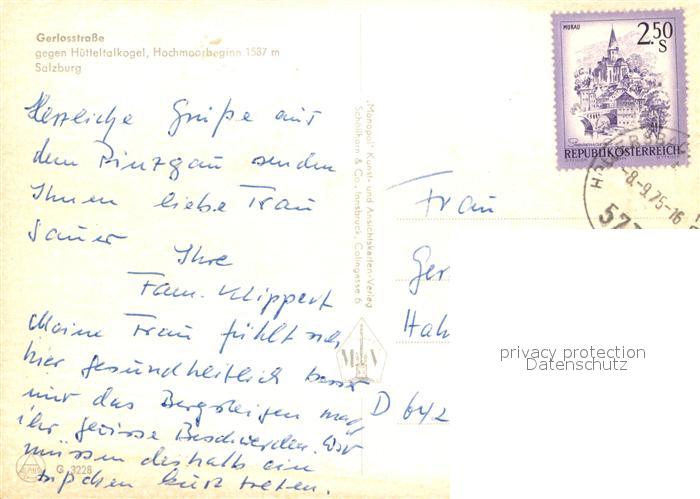 Gerlosstraße
gegen Hütteltalkogel, Hochmoorbeginn 1587 m
Salzburg
Herzliche Grüße aus
dem Pinzgau senden
Ihnen liebe Frau
Sauer Ihre
Fam. Klippert
Meine Frau fühlt sich
hier gesundheitlich besser
nur das Bergsteigen mag
ihr gewisse Beschwerden. Wir
müssen deshalb ein
bißchen kurz treten.
G 3228
„Monopol" Kunst- und Ansichtskarten-Verlag
Schöllhorn & Co., Innsbruck, Colingasse 6
M V
MURAU
2.50
S
REPUBLIK ÖSTERREICH
-8.-9.75-16
57
Frau
Ger
Hah
D 642
privacy protection
Datenschutz